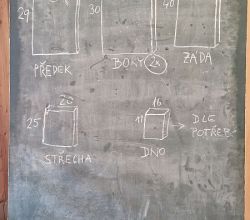 29 30 40
PŘEDEK BOKY 2x ZÁDA
20 16
25 11 → DLE
POTŘEB
STŘECHA DNO